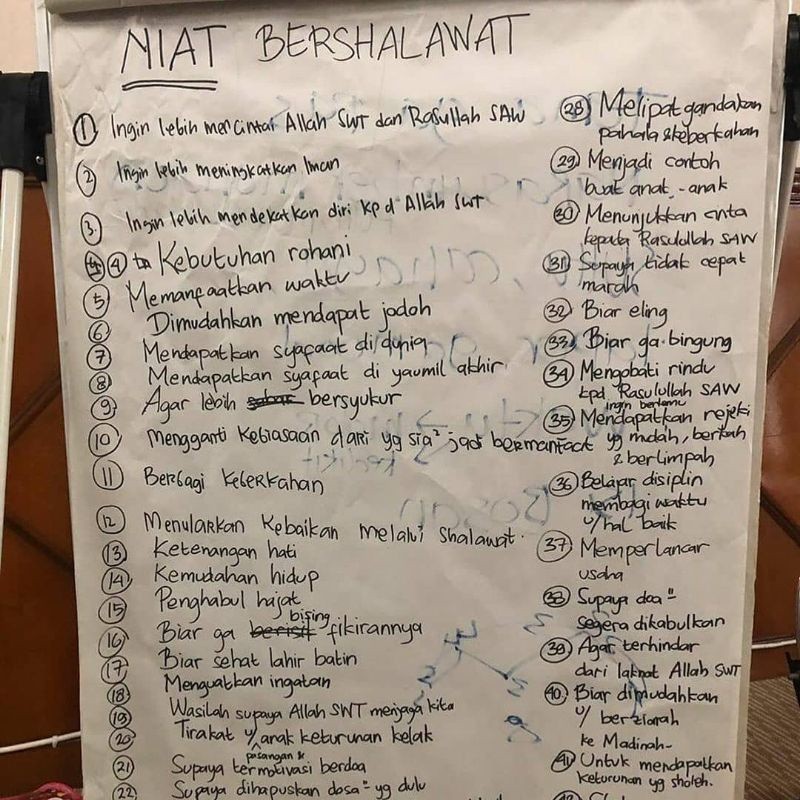 NIAT BERSHALAWAT
1 Ingin lebih mencintai Allah SWT dan Rasullah SAW
2 Ingin lebih meningkatkan Iman
3. Ingin lebih mendekatkan diri kpd Allah SWT
4 Kebutuhan rohani
5 Memanfaatkan waktu
6 Dimudahkan mendapat jodoh
7 Mendapatkan syafaat di dunia
8 Mendapatkan syafaat di yaumil akhir
9 Agar lebih bersyukur
10 Mengganti kebiasaan dari yg sia² jadi bermanfaat
11 Berbagi keberkahan
12 Menularkan kebaikan melalui shalawat.
13 Ketenangan hati
14 Kemudahan hidup
15 Penghabul hajat
16 Biar ga bising fikirannya
17 Biar sehat lahir batin
18 Menguatkan ingatan
19 Wasilah supaya Allah SWT menjaga kita
20 Tirakat u/ anak keturunan kelak
pasangan &
21 Supaya termotivasi berdoa
22 Supaya dihapuskan dosa" yg dulu
28 Melipat gandakan
pahala & keberkahan
29 Menjadi contoh
buat anak - anak
30 Menunjukkan cinta
kepada Rasulullah SAW
31 Supaya tidak cepat
marah
32 Biar eling
33 Biar ga bingung
34 Mengobati rindu
kpd Rasulullah SAW
ingin bertemu
35 Mendapatkan rejeki
yg mudah, berkah
& berlimpah
36 Belajar disiplin
membagi waktu
u/ hal baik
37 Memperlancar
usaha
38 Supaya doa"
segera dikabulkan
39 Agar terhindar
dari laknat Allah SWT
40 Biar dimudahkan
u/ berziarah
ke Madinah-
41 Untuk mendapatkan
keturunan yg sholeh.